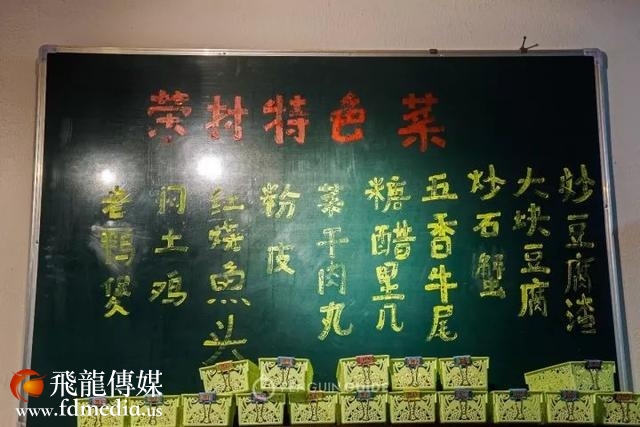 荣村特色菜
老鸭煲
闷土鸡
红烧魚头
粉皮
菜干肉丸
糖醋里几
五香牛尾
炒石蟹
大块豆腐
炒豆腐渣
飛龍傳媒
www.fdmedia.us